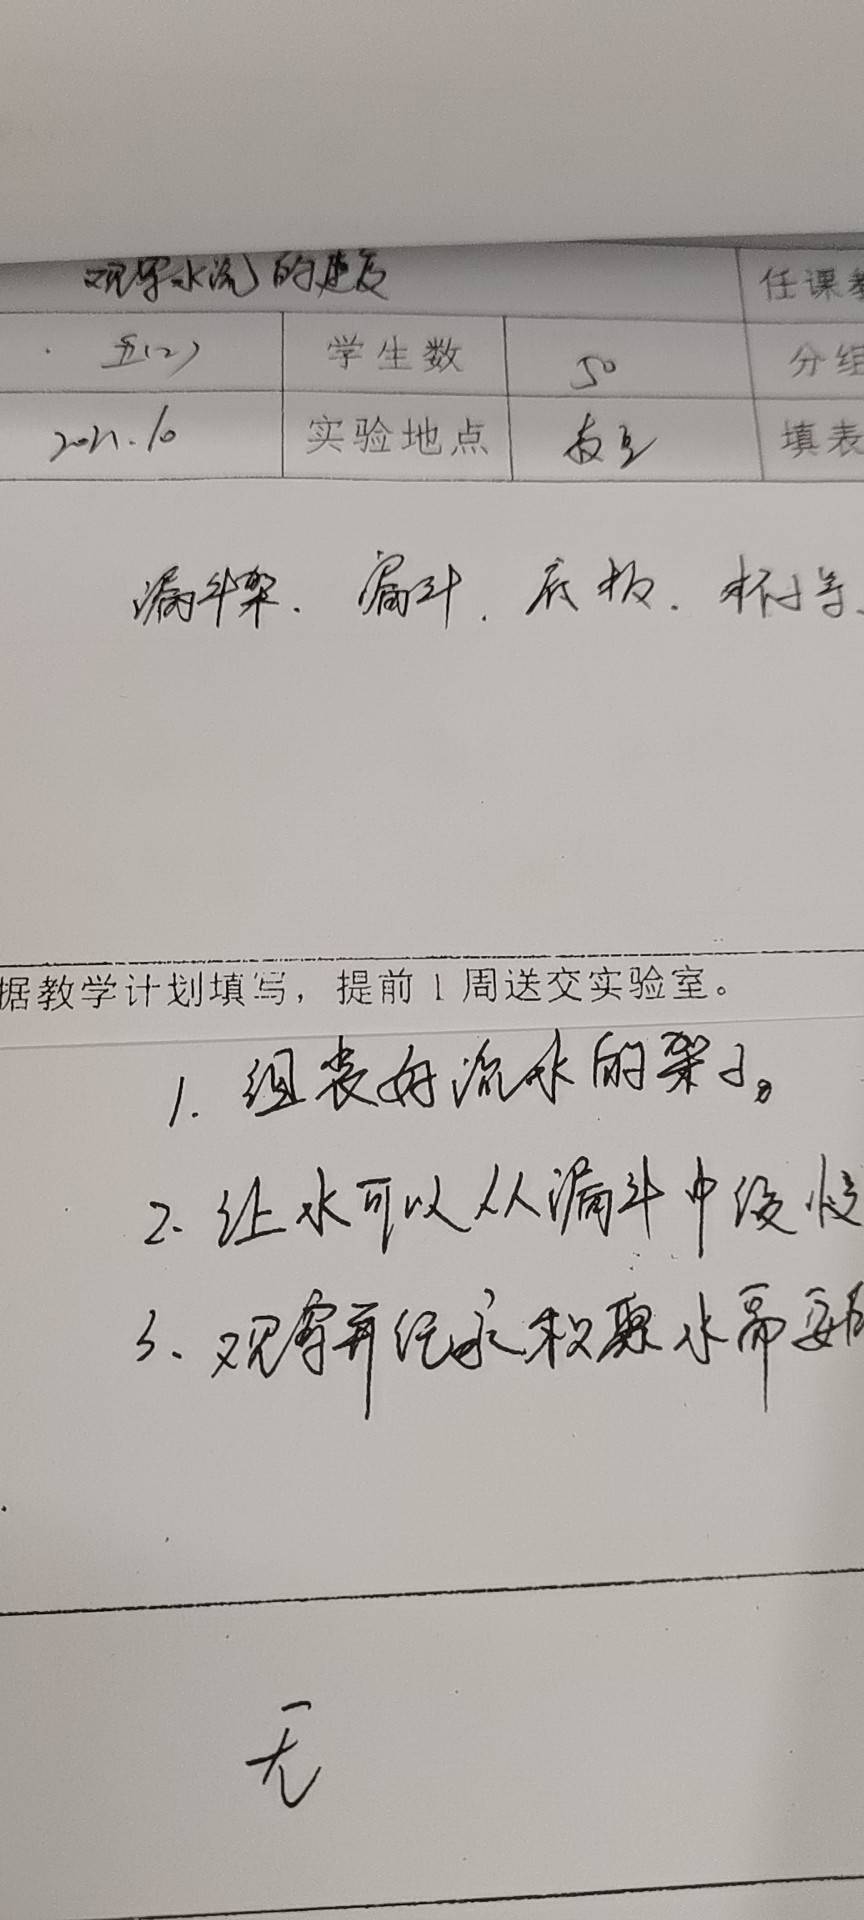 观察水流的速度 任课教
五(2) 学生数 50 分组
2021.10 实验地点 教室 填表
漏斗架. 漏斗. 底板. 杯子等.
据教学计划填写，提前1周送交实验室。
1. 组装好流水的架子。
2. 让水可以从漏斗中缓慢
3. 观察并记录积聚水需要
无